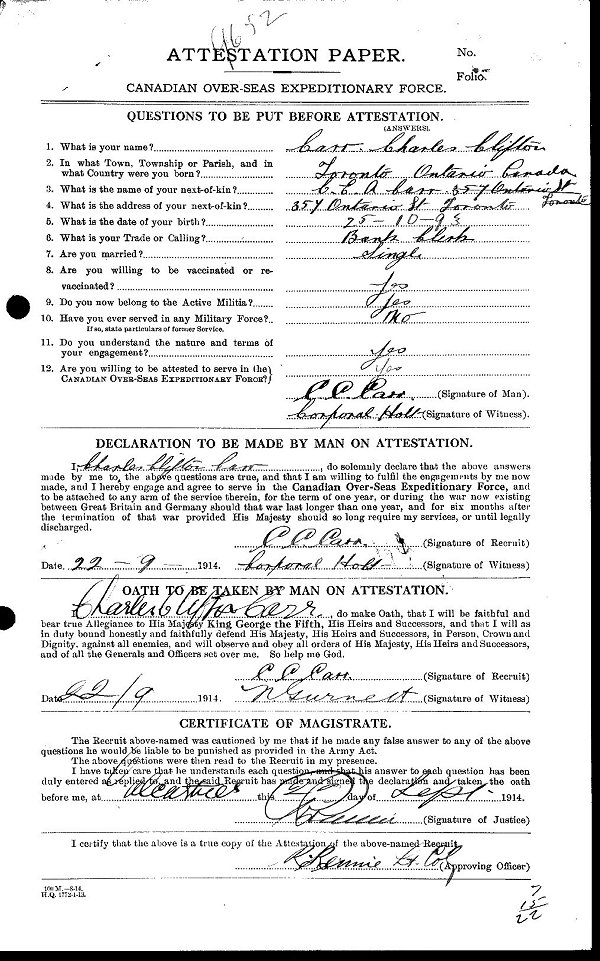 ATTESTATION PAPER.
No.
Folio.
CANADIAN OVER-SEAS EXPEDITIONARY FORCE.
QUESTIONS TO BE PUT BEFORE ATTESTATION.
(ANSWERS).
1. What is your name? Carr Charles Clifton
2. In what Town, Township or Parish, and in
what Country were you born? Toronto Ontario Canada
3. What is the name of your next-of-kin? C. E. A Carr 357 Ontario St
4. What is the address of your next-of-kin? 357 Ontario St Toronto Toronto
5. What is the date of your birth? 25-10-93
6. What is your Trade or Calling? Bank Clerk
7. Are you married? Single
8. Are you willing to be vaccinated or re-
vaccinated? Yes
9. Do you now belong to the Active Militia? Yes
10. Have you ever served in any Military Force? No
If so, state particulars of former Service.
11. Do you understand the nature and terms of
your engagement? Yes
12. Are you willing to be attested to serve in the Yes
CANADIAN OVER-SEAS EXPEDITIONARY FORCE?
C C Carr (Signature of Man).
Corporal Holt (Signature of Witness).
DECLARATION TO BE MADE BY MAN ON ATTESTATION.
I, Charles Clifton Carr, do solemnly declare that the above answers
made by me to the above questions are true, and that I am willing to fulfil the engagements by me now
made, and I hereby engage and agree to serve in the Canadian Over-Seas Expeditionary Force, and
to be attached to any arm of the service therein, for the term of one year, or during the war now existing
between Great Britain and Germany should that war last longer than one year, and for six months after
the termination of that war provided His Majesty should so long require my services, or until legally
discharged.
C C Carr (Signature of Recruit)
Date 22-9- 1914. Corporal Holt (Signature of Witness)
OATH TO BE TAKEN BY MAN ON ATTESTATION.
I, Charles Clifton Carr, do make Oath, that I will be faithful and
bear true Allegiance to His Majesty King George the Fifth, His Heirs and Successors, and that I will as
in duty bound honestly and faithfully defend His Majesty, His Heirs and Successors, in Person, Crown and
Dignity, against all enemies, and will observe and obey all orders of His Majesty, His Heirs and Successors,
and of all the Generals and Officers set over me. So help me God.
C C Carr (Signature of Recruit)
Date 22/9 1914. (Signature of Witness)
CERTIFICATE OF MAGISTRATE.
The Recruit above-named was cautioned by me that if he made any false answer to any of the above
questions he would be liable to be punished as provided in the Army Act.
The above questions were then read to the Recruit in my presence.
I have taken care that he understands each question, and that his answer to each question has been
duly entered as replied to, and the said Recruit has made and signed the declaration and taken the oath
before me, at Valcartier this 22 day of Sept 1914.
(Signature of Justice)
I certify that the above is a true copy of the Attestation of the above-named Recruit.
Rennie Lt. Col (Approving Officer)
100 M.—8-14.
H.Q. 1772-1-13.
7
15
22